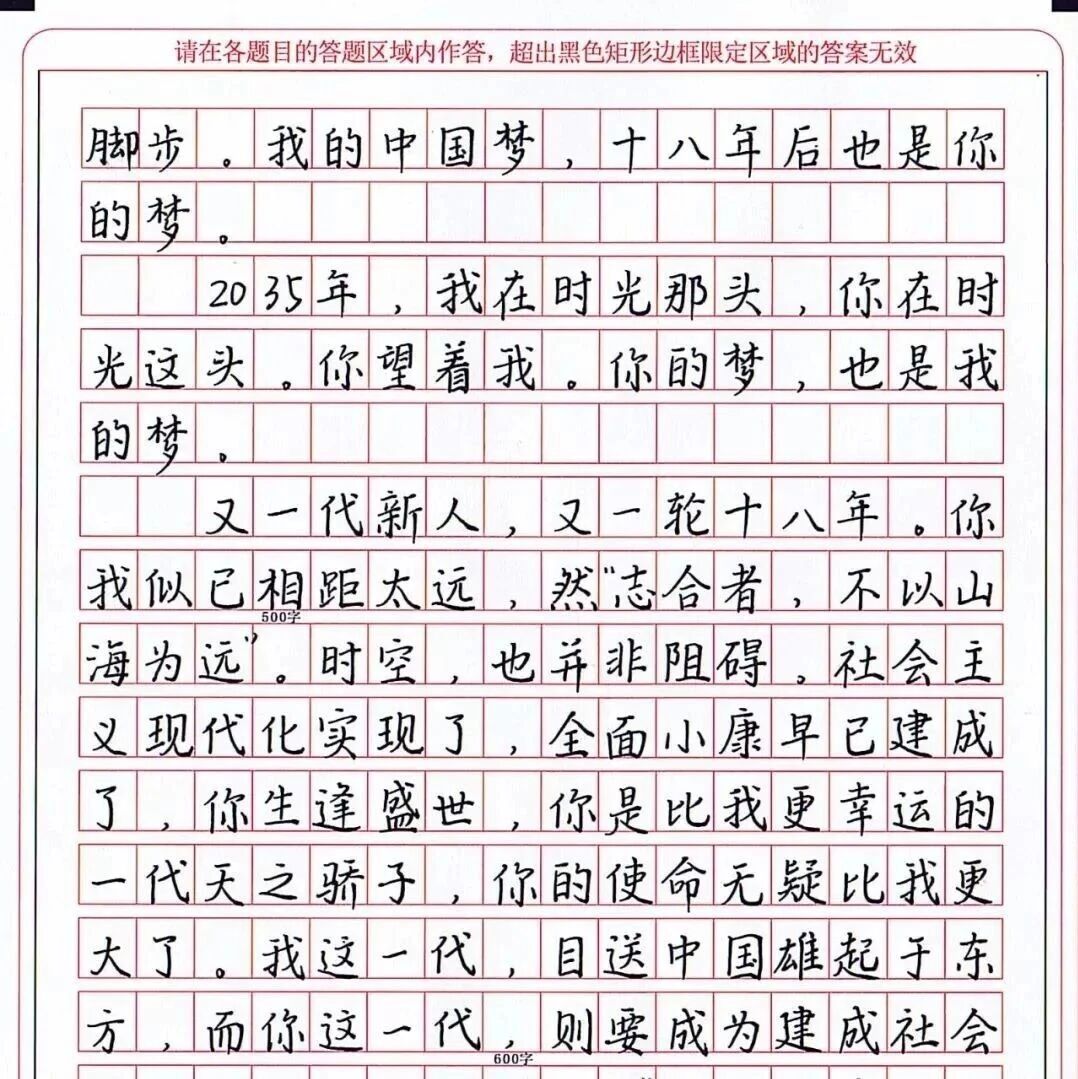 请在各题目的答题区域内作答，超出黑色矩形边框限定区域的答案无效
脚步。我的中国梦，十八年后也是你
的梦。
2035年，我在时光那头，你在时
光这头。你望着我。你的梦，也是我
的梦。
又一代新人，又一轮十八年。你
我似已相距太远，然“志合者，不以山
500字
海为远”。时空，也并非阻碍。社会主
义现代化实现了，全面小康早已建成
了，你生逢盛世，你是比我更幸运的
一代天之骄子，你的使命无疑比我更
大了。我这一代，目送中国雄起于东
方，而你这一代，则要成为建成社会
600字